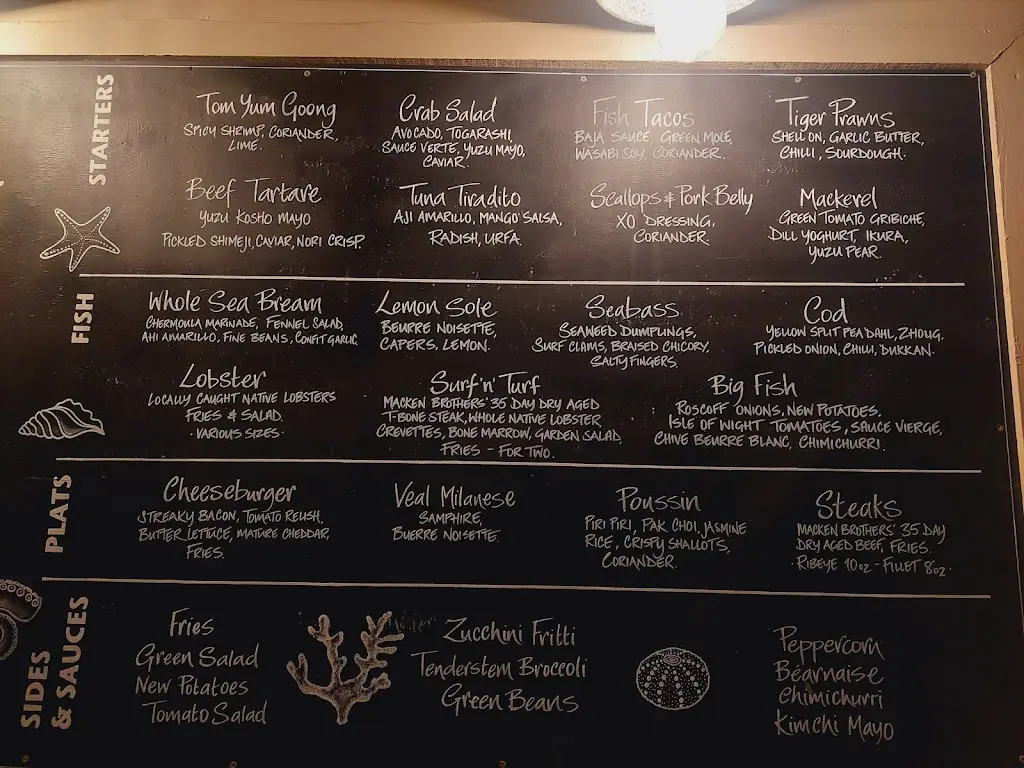 STARTERS
Tom Yum Goong
SPICY SHRIMP, CORIANDER,
LIME.
Crab Salad
AVOCADO, TOGARASHI,
SAUCE VERTE, YUZU MAYO,
CAVIAR.
Fish Tacos
BAJA SAUCE, GREEN MOLE,
WASABI SOY, CORIANDER.
Tiger Prawns
SHELL ON, GARLIC BUTTER,
CHILLI, SOURDOUGH.
Beef Tartare
YUZU KOSHO MAYO
PICKLED SHIMEJI, CAVIAR, NORI CRISP.
Tuna Tiradito
AJI AMARILLO, MANGO SALSA,
RADISH, URFA.
Scallops & Pork Belly
XO DRESSING,
CORIANDER.
Mackerel
GREEN TOMATO GRIBICHE,
DILL YOGHURT, IKURA,
YUZU PEAR.
FISH
Whole Sea Bream
CHERMOULA MARINADE, FENNEL SALAD,
AHI AMARILLO, FINE BEANS, CONFIT GARLIC
Lemon Sole
BEURRE NOISETTE,
CAPERS, LEMON.
Seabass
SEAWEED DUMPLINGS,
SURF CLAMS, BRAISED CHICORY,
SALTY FINGERS.
Cod
YELLOW SPLIT PEA DAHL, ZHOUG,
PICKLED ONION, CHILLI, DUKKAN.
Lobster
LOCALLY CAUGHT NATIVE LOBSTERS
FRIES & SALAD.
· VARIOUS SIZES ·
Surf 'n' Turf
MACKEN BROTHERS' 35 DAY DRY AGED
T-BONE STEAK, WHOLE NATIVE LOBSTER,
CREVETTES, BONE MARROW, GARDEN SALAD,
FRIES - FOR TWO.
Big Fish
ROSCOFF ONIONS, NEW POTATOES.
ISLE OF WIGHT TOMATOES, SAUCE VIERGE,
CHIVE BEURRE BLANC, CHIMICHURRI
PLATS
Cheeseburger
STREAKY BACON, TOMATO RELISH,
BUTTER LETTUCE, MATURE CHEDDAR,
FRIES.
Veal Milanese
SAMPHIRE,
BUERRE NOISETTE.
Poussin
PIRI PIRI, PAK CHOI, JASMINE
RICE, CRISPY SHALLOTS,
CORIANDER.
Steaks
MACKEN BROTHERS' 35 DAY
DRY AGED BEEF, FRIES.
· RIBEYE 10oz - FILLET 8oz ·
SIDES
& SAUCES
Fries
Green Salad
New Potatoes
Tomato Salad
Zucchini Fritti
Tenderstem Broccoli
Green Beans
Peppercorn
Béarnaise
Chimichurri
Kimchi Mayo